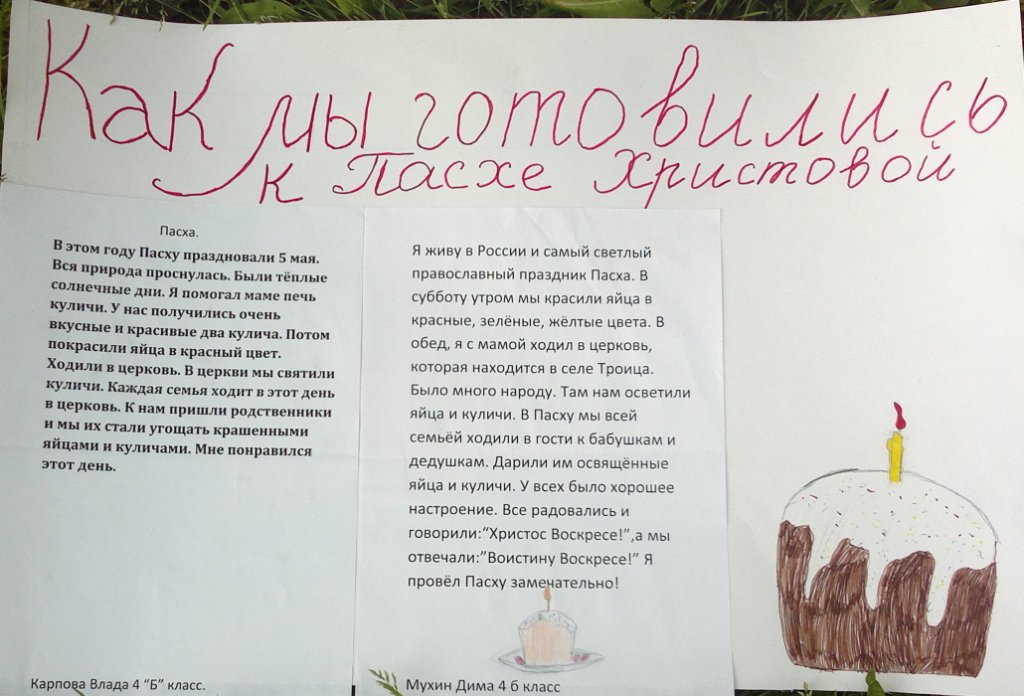 Как мы готовились
к Пасхе Христовой
Пасха.
В этом году Пасху праздновали 5 мая.
Вся природа проснулась. Были тёплые
солнечные дни. Я помогал маме печь
куличи. У нас получились очень
вкусные и красивые два кулича. Потом
покрасили яйца в красный цвет.
Ходили в церковь. В церкви мы святили
куличи. Каждая семья ходит в этот день
в церковь. К нам пришли родственники
и мы их стали угощать крашенными
яйцами и куличами. Мне понравился
этот день.
Карпова Влада 4 “Б” класс.
Я живу в России и самый светлый
православный праздник Пасха. В
субботу утром мы красили яйца в
красные, зелёные, жёлтые цвета. В
обед, я с мамой ходил в церковь,
которая находится в селе Троица.
Было много народу. Там нам осветили
яйца и куличи. В Пасху мы всей
семьёй ходили в гости к бабушкам и
дедушкам. Дарили им освящённые
яйца и куличи. У всех было хорошее
настроение. Все радовались и
говорили:“Христос Воскресе!”,а мы
отвечали:”Воистину Воскресе!” Я
провёл Пасху замечательно!
Мухин Дима 4 б класс